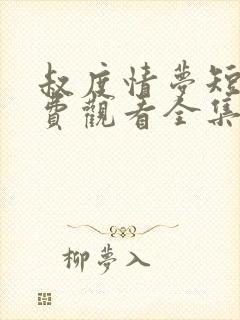 叔度情夢短
費觀看全集
柳夢入